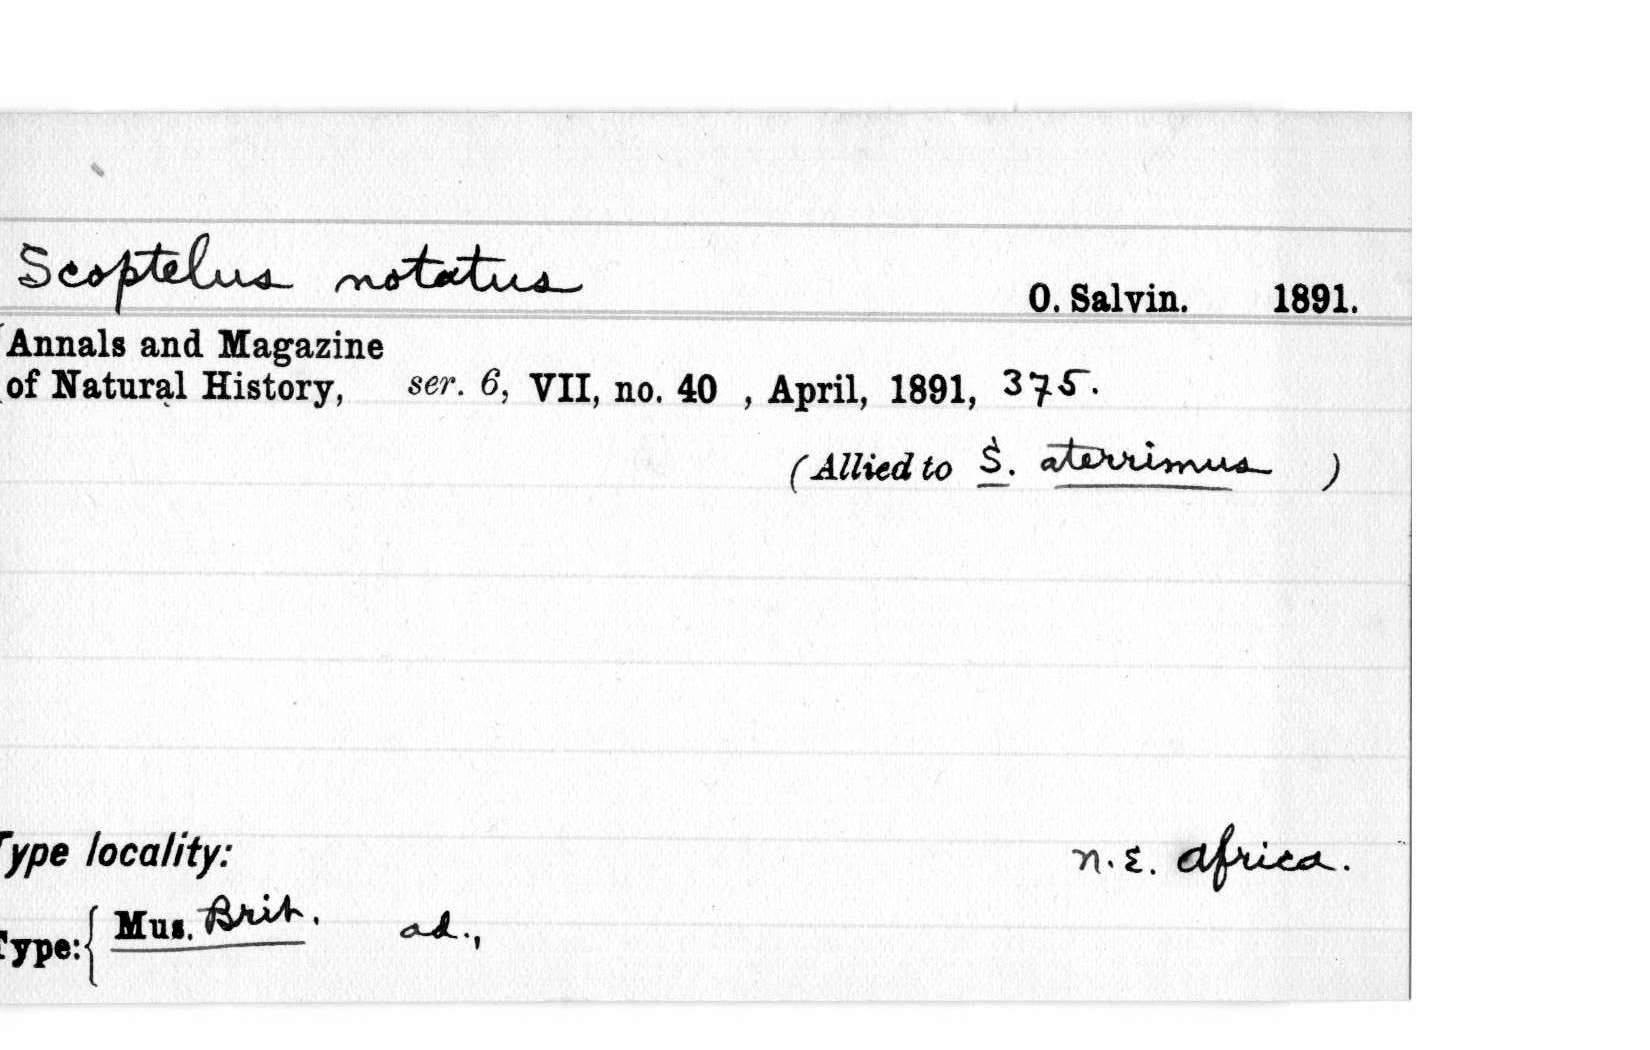 Scoptelus notatus O. Salvin. 1891.
Annals and Magazine
of Natural History, ser. 6, VII, no. 40 , April, 1891, 375.
(Allied to S. aterrimus )
Type locality: N.E. Africa.
Type: { Mus. Brit. ad.,